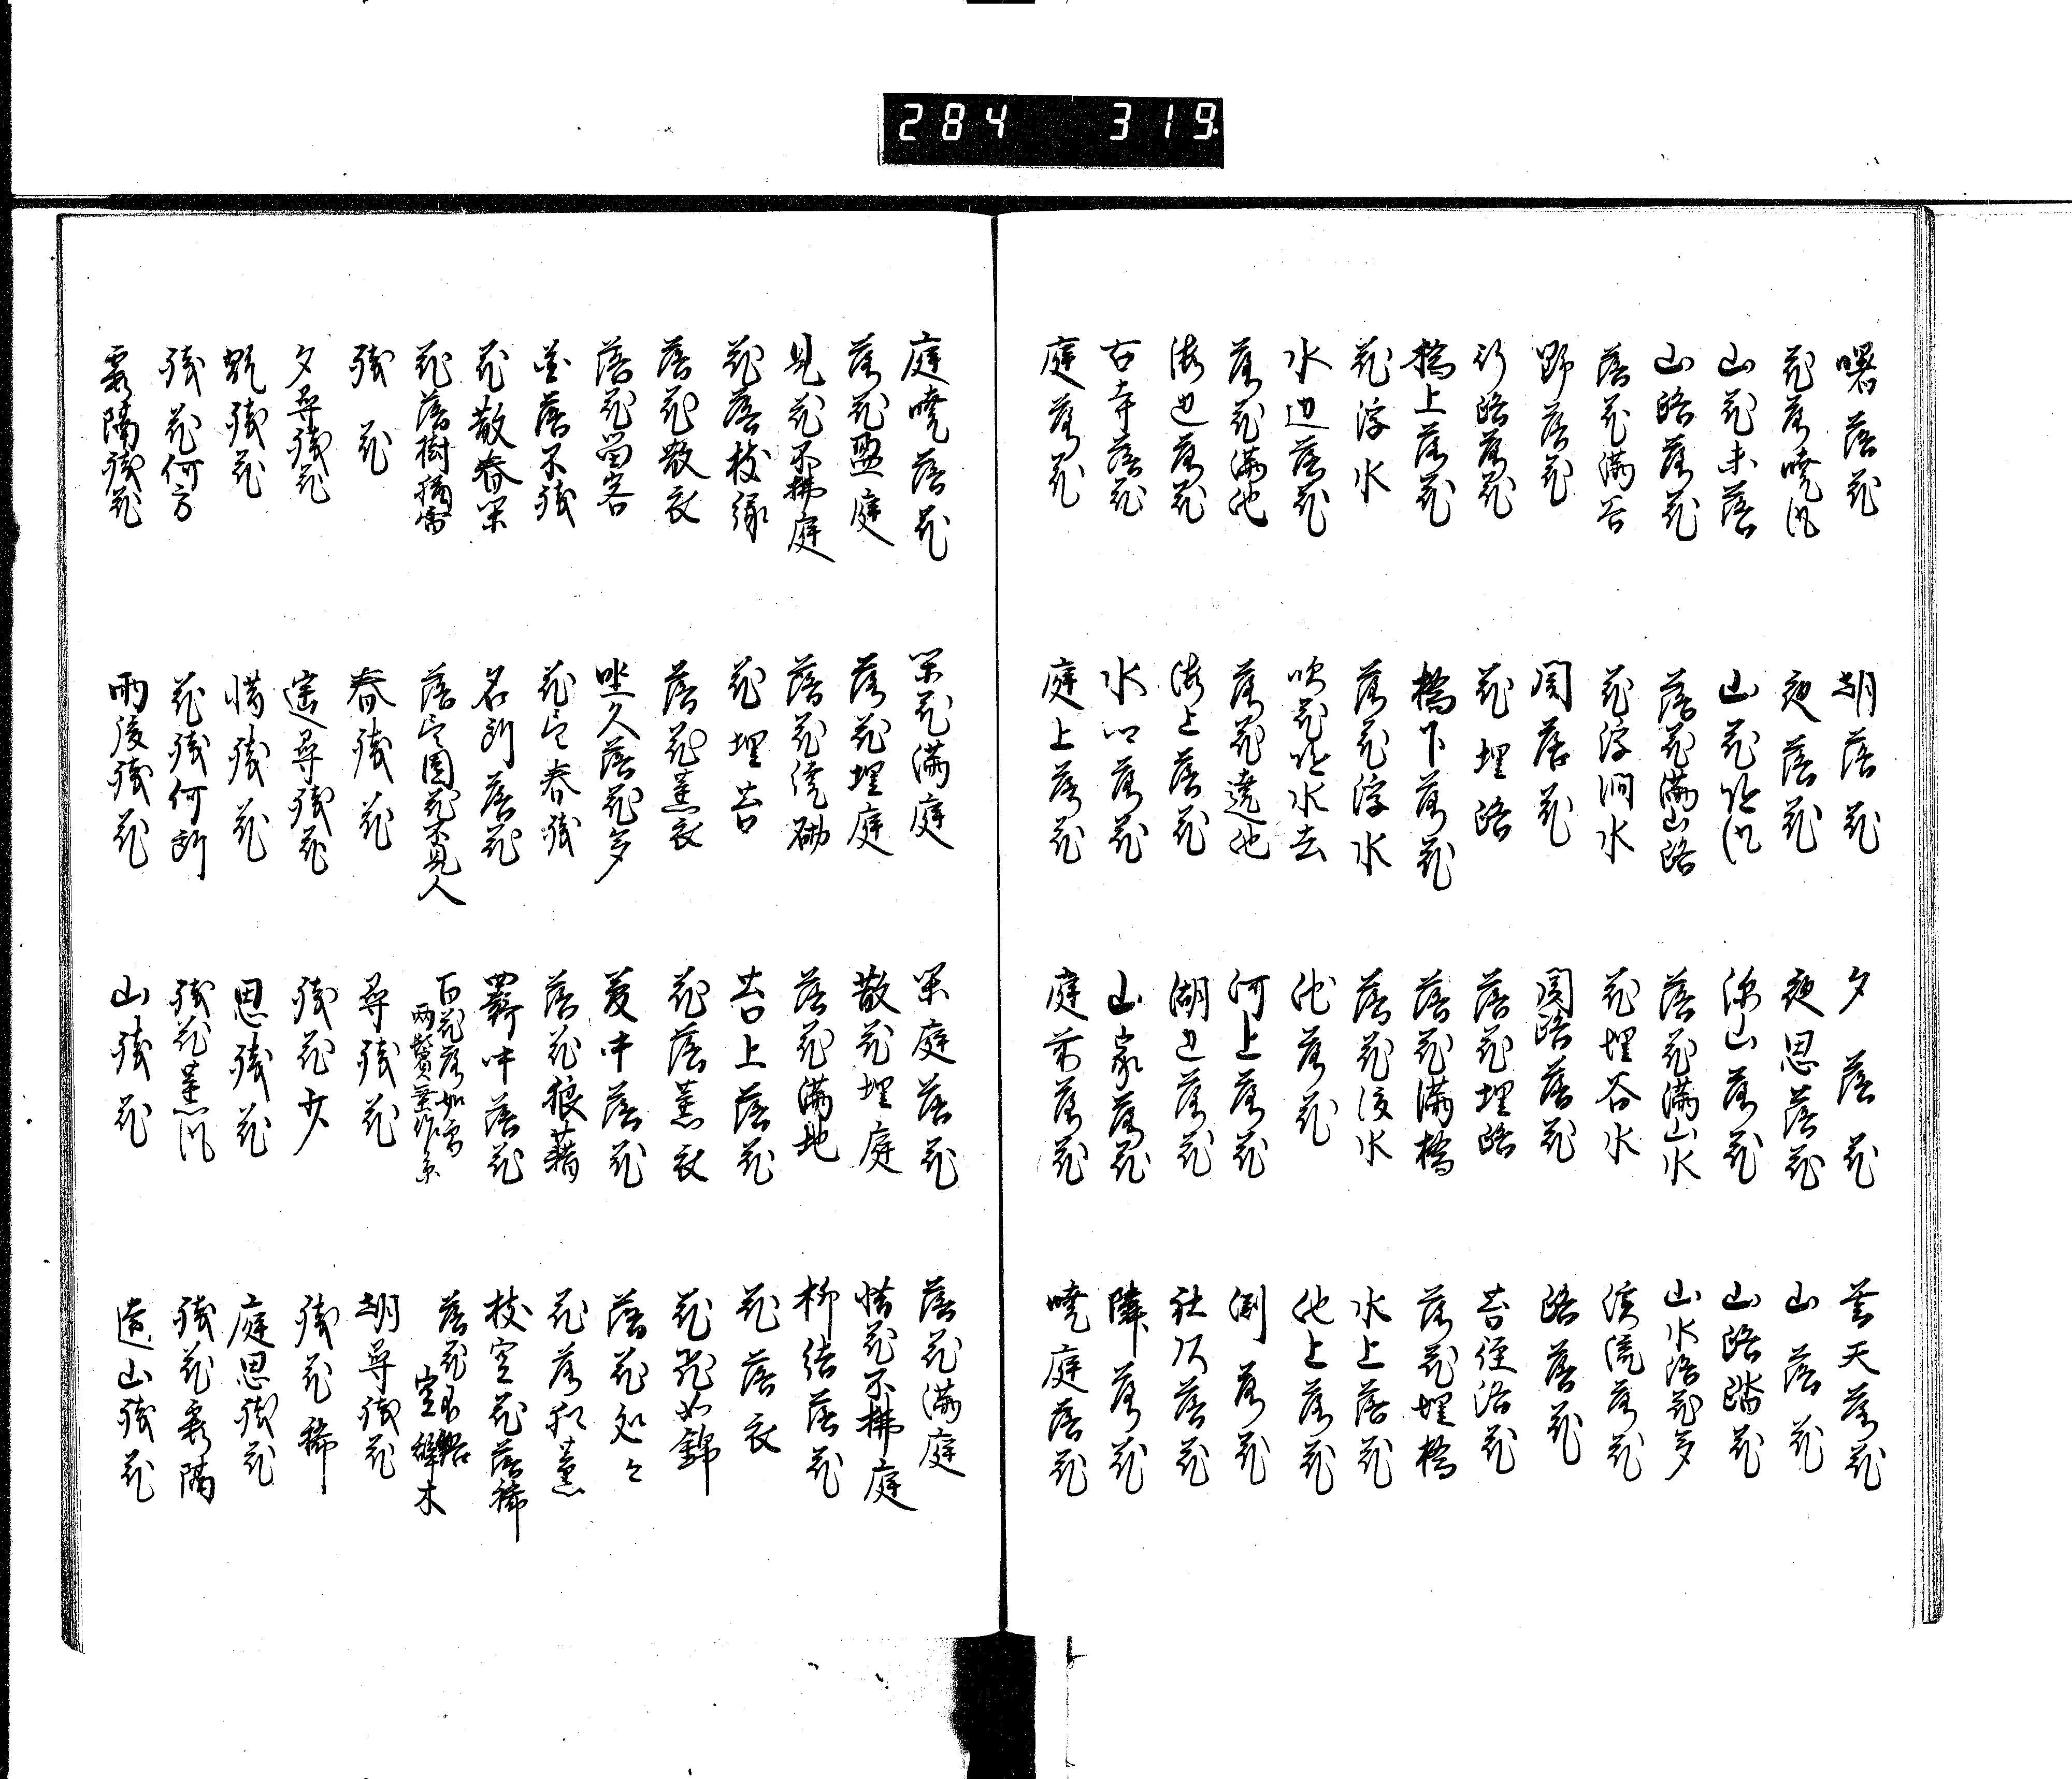 284 319
曙落花 朝落花 夕落花 暮天落花
花落暁風 夜落花 夜思落花 山落花
山花未落 山花随風 深山落花 山路踏花
山路落花 落花満山路 落花満山水 山水落花多
落花満谷 花浮澗水 花埋谷水 渓流落花
野落花 関落花 関路落花 路落花
行路落花 花埋路 落花埋路 苔径落花
橋上落花 橋下落花 落花満橋 落花埋橋
花浮水 落花浮水 落花浮水 水上落花
水辺落花 吹花随水去 池落花 池上落花
落花満池 落花遶池 河上落花 落花
海辺落花 海上落花 湖辺落花 社頭落花
古寺落花 水口落花 山家落花 隣落花
庭落花 庭上落花 庭前落花 暁庭落花
庭暁落花 閑花満庭 閑庭落花 落花満庭
落花盈庭 落花埋庭 散花埋庭 惜花不掃庭
見花不掃庭 落花遶砌 落花満地 柳结落花
花落枝緑 花埋苔 苔上落花 花落衣
落花散衣 落花薫衣 花落薫衣 花飛如錦
落花留客 坐久落花多 夢中落花 落花処々
花落不残 花尽春残 落花狼藉 花落猶薫
花散春闌 名所落花 羇中落花 枝空花落稀
花落樹猶香 落尽園花不見人 百花落如雪 両鬢垂作糸 落花
残花 春残花 尋残花 朝尋残花
夕尋残花 遥尋残花 残花少 残花稀
翫残花 惜残花 思残花 庭思残花
残花何方 花残何所 残花薫風 残花霞隔
霞隔残花 雨後残花 山残花 遠山残花